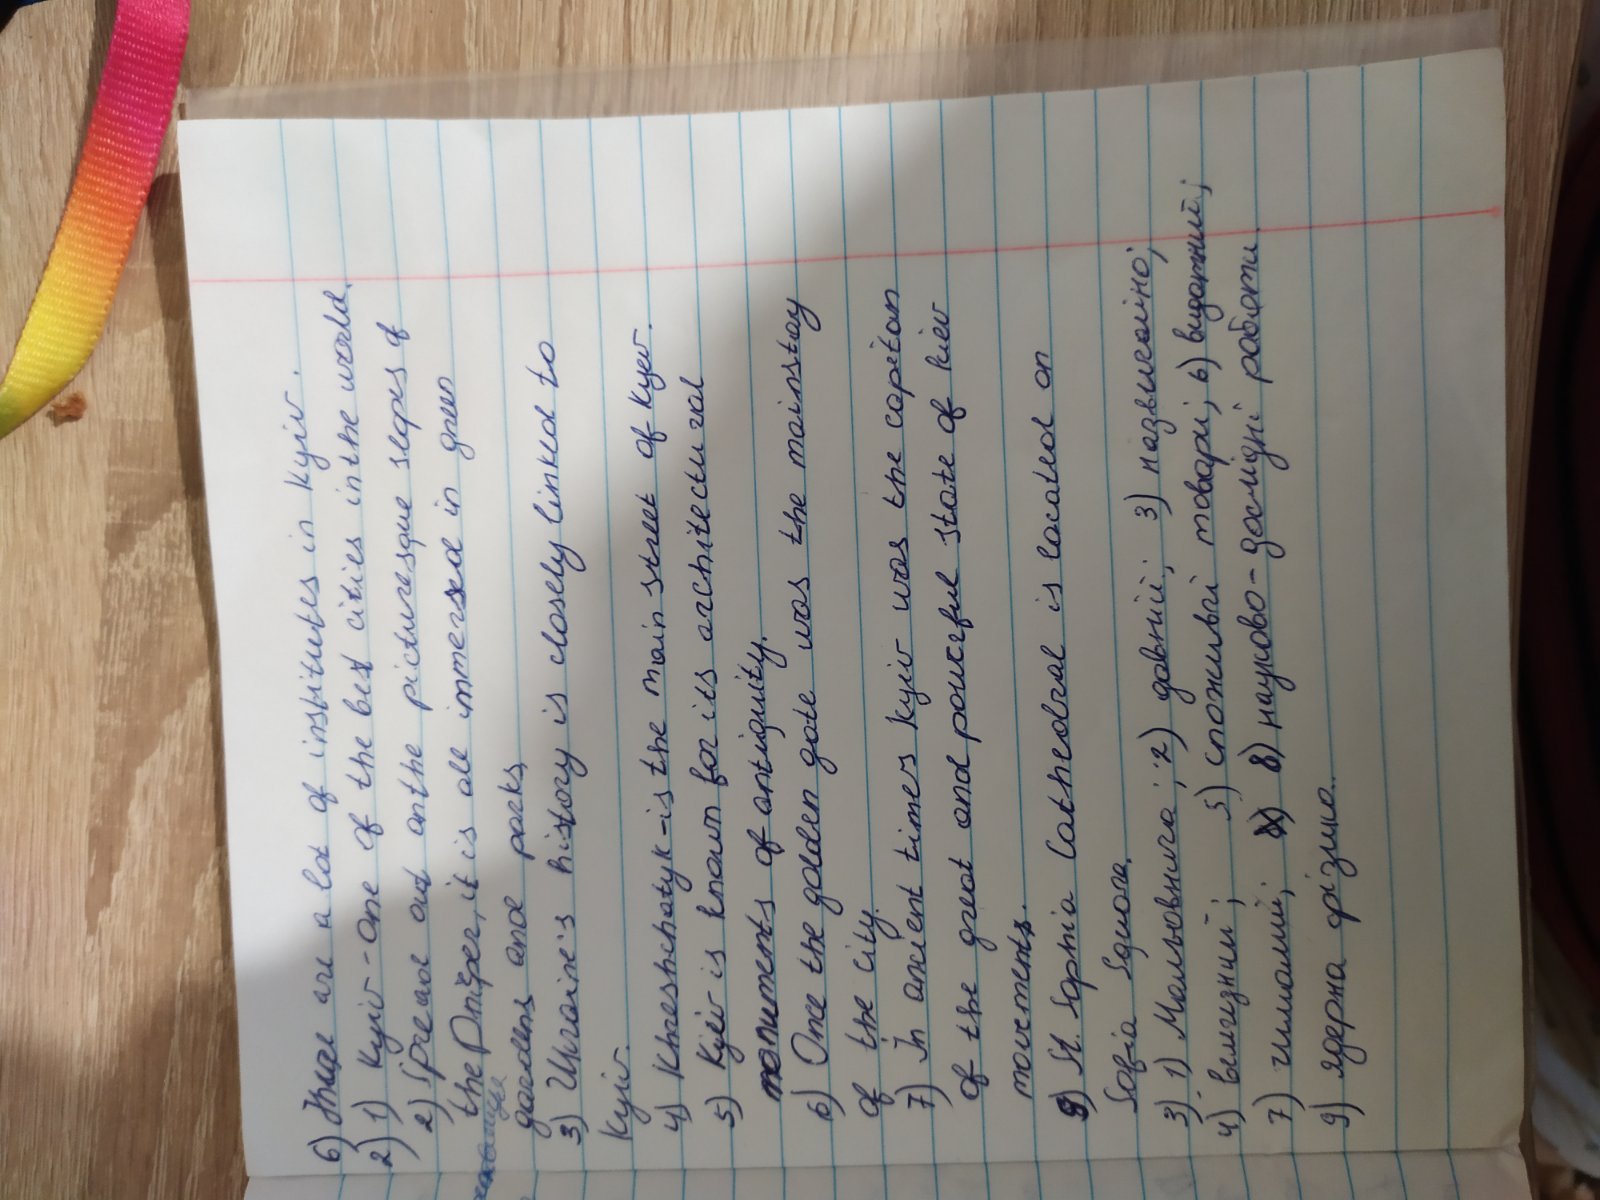 6) There are a lot of institutes in Kyiv.
2) 1) Kyiv - One of the best cities in the world.
2) Spread out on the picturesque slopes of
the Dniper, it is all immersed in green
gardens and parks,
3) Ukraine's history is closely linked to
Kyiv.
4) Khreshchatyk - is the main street of Kyev.
5) Kyiv is known for its architectural
monuments of antiquity.
6) Once the golden gate was the mainstay
of the city.
7) In ancient times Kyiv was the capitan
of the great and powerful state of kiev
movements.
8) St. Sophia Cathedral is located on
Sofia Square.
3) 1) Мальовнича; 2) давній; 3) назвисемійно;
4) величезний; 5) споживчі товари; 6) видатний;
7) чималий; 8) науково-дослідні работи.
9) ядерна фізика.